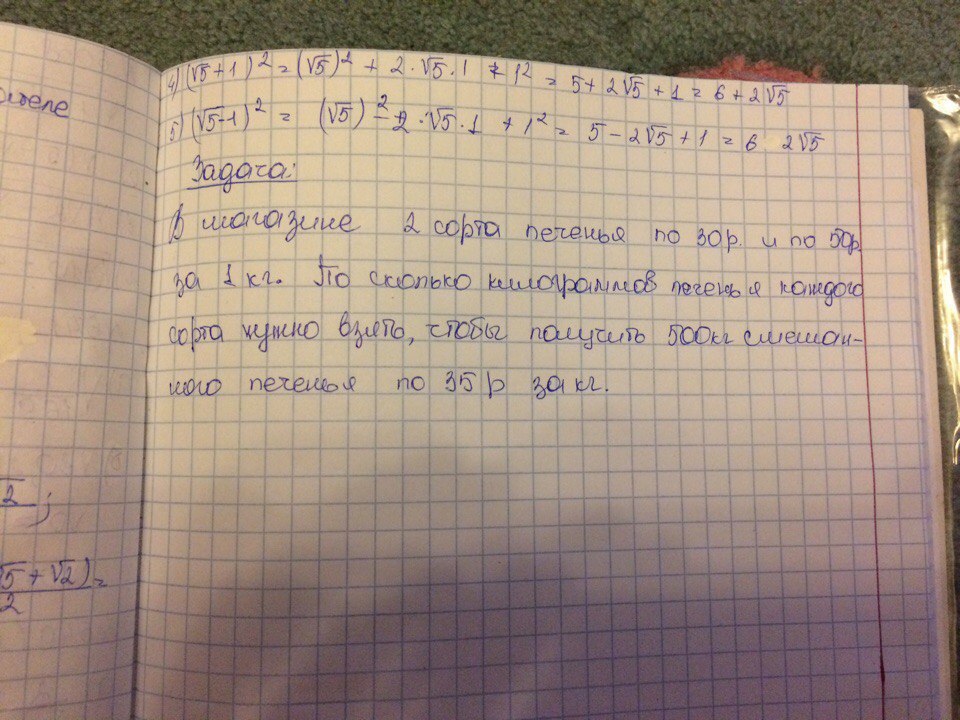 4) (√5+1)² = (√5)² + 2·√5·1 + 1² = 5+2√5+1 = 6+2√5
5) (√5-1)² = (√5)² - 2·√5·1 + 1² = 5-2√5+1 = 6 2√5
Задача:
В магазине 2 сорта печенья по 30р. и по 50р.
за 1 кг. По сколько килограммов печенья каждого
сорта нужно взять, чтобы получить 500кг смешан-
ного печенья по 35р за кг.
√2;
√5+√2)=
2